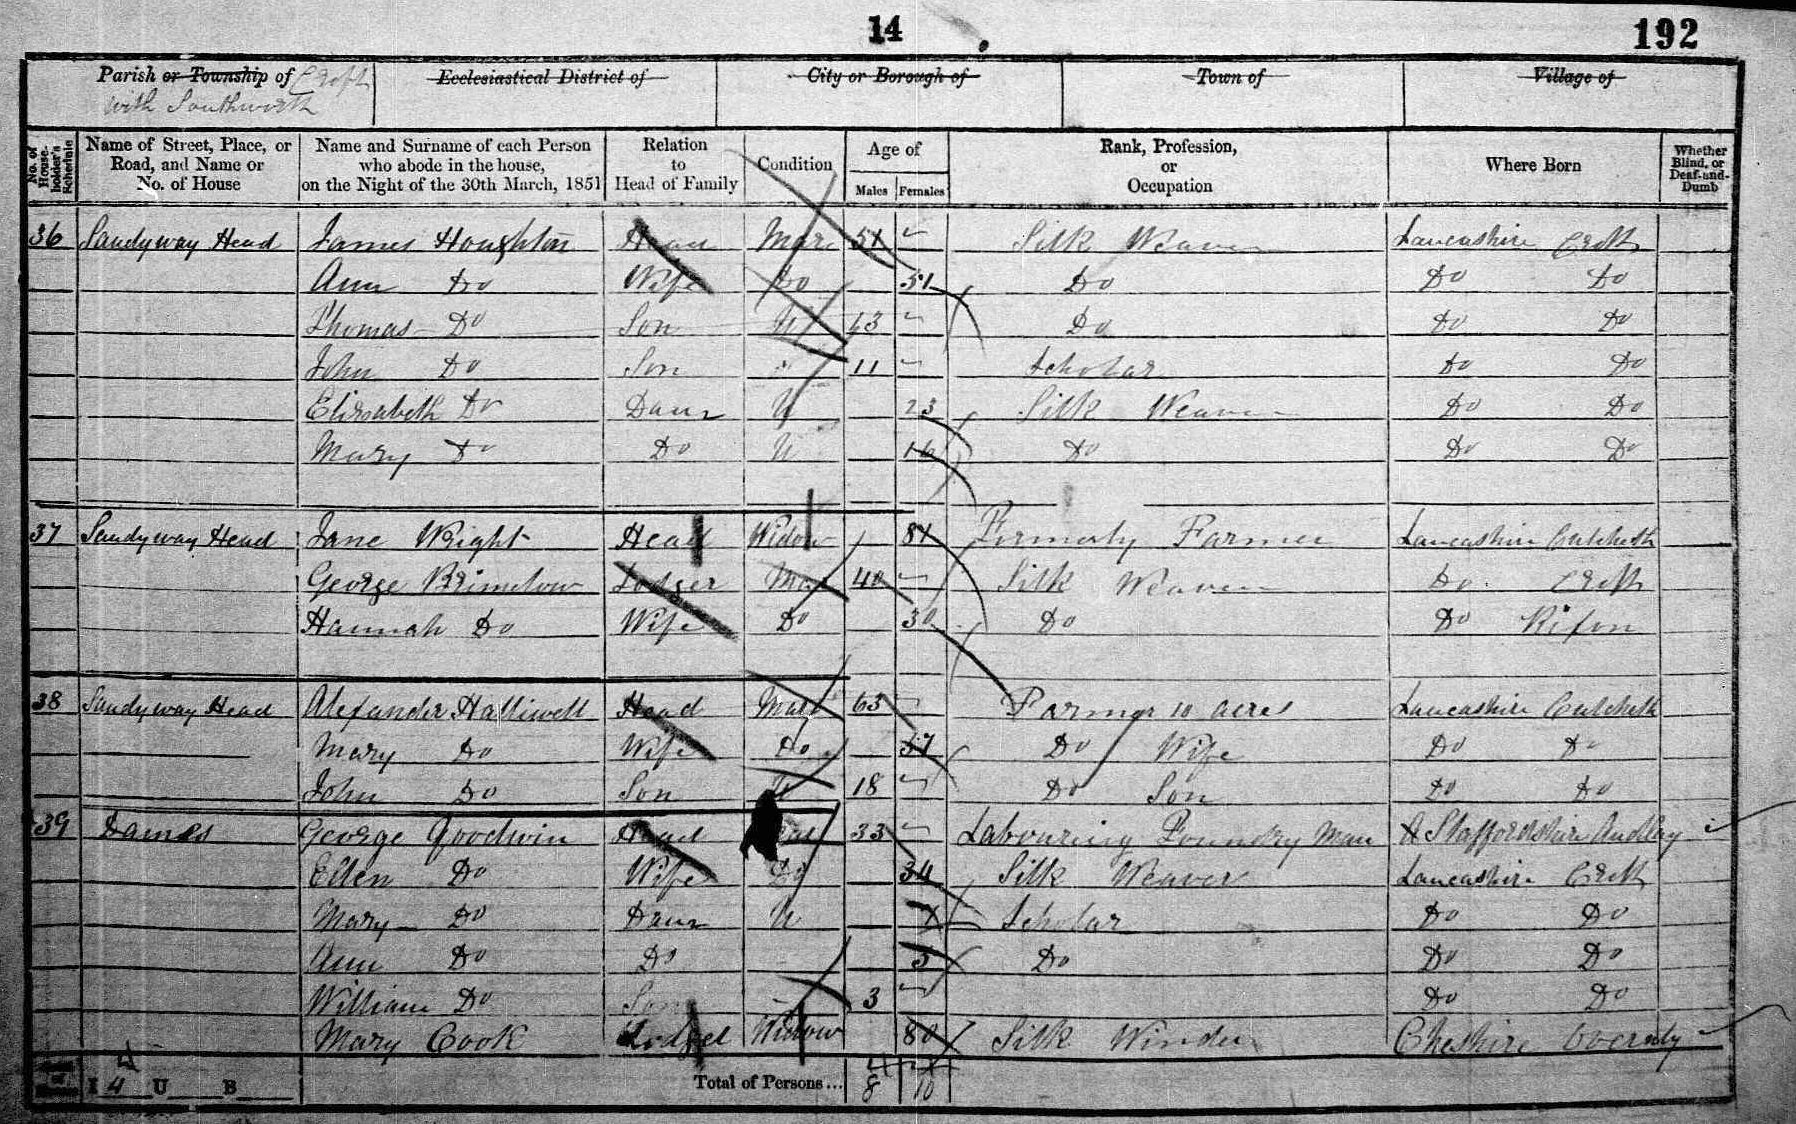 14
192
Parish or Township of Croft with Southworth
Ecclesiastical District of
City or Borough of
Town of
Village of
No. of House-holder's Schedule
Name of Street, Place, or Road, and Name or No. of House
Name and Surname of each Person who abode in the house, on the Night of the 30th March, 1851
Relation to Head of Family
Condition
Age of
Males Females
Rank, Profession, or Occupation
Where Born
Whether Blind, or Deaf-and-Dumb
36 Sandyway Head James Houghton Head Mar 51 Silk Weaver Lancashire Croft
Ann Do Wife Do 51 Do Do Do
Thomas Do Son U Do Do Do
John Do Son 11 Scholar Do Do
Elizabeth Do Daur U 23 Silk Weaver Do Do
Mary Do Do U 16 Do Do Do
37 Sandyway Head Jane Wright Head Widow Formerly Farmer Lancashire Culcheth
George Brimelow Lodger Mar 40 Silk Weaver Do Croft
Hannah Do Wife Do 30 Do Do
38 Sandyway Head Alexander Halliwell Head Mar 63 Farmer 10 acres Lancashire Culcheth
Mary Do Wife Do 57 Do Wife Do Do
John Do Son U 18 Do Son Do Do
39 Dames George Goodwin Head Mar 33 Labouring Foundry Man Staffordshire Audley
Ellen Do Wife Do 34 Silk Weaver Lancashire Croft
Mary Do Daur U 7 Scholar Do Do
Ann Do Do 5 Do Do Do
William Do Son 3 Do Do
Mary Cook Lodger Widow 80 Silk Winder Cheshire
I 4 U B Total of Persons... 8 10